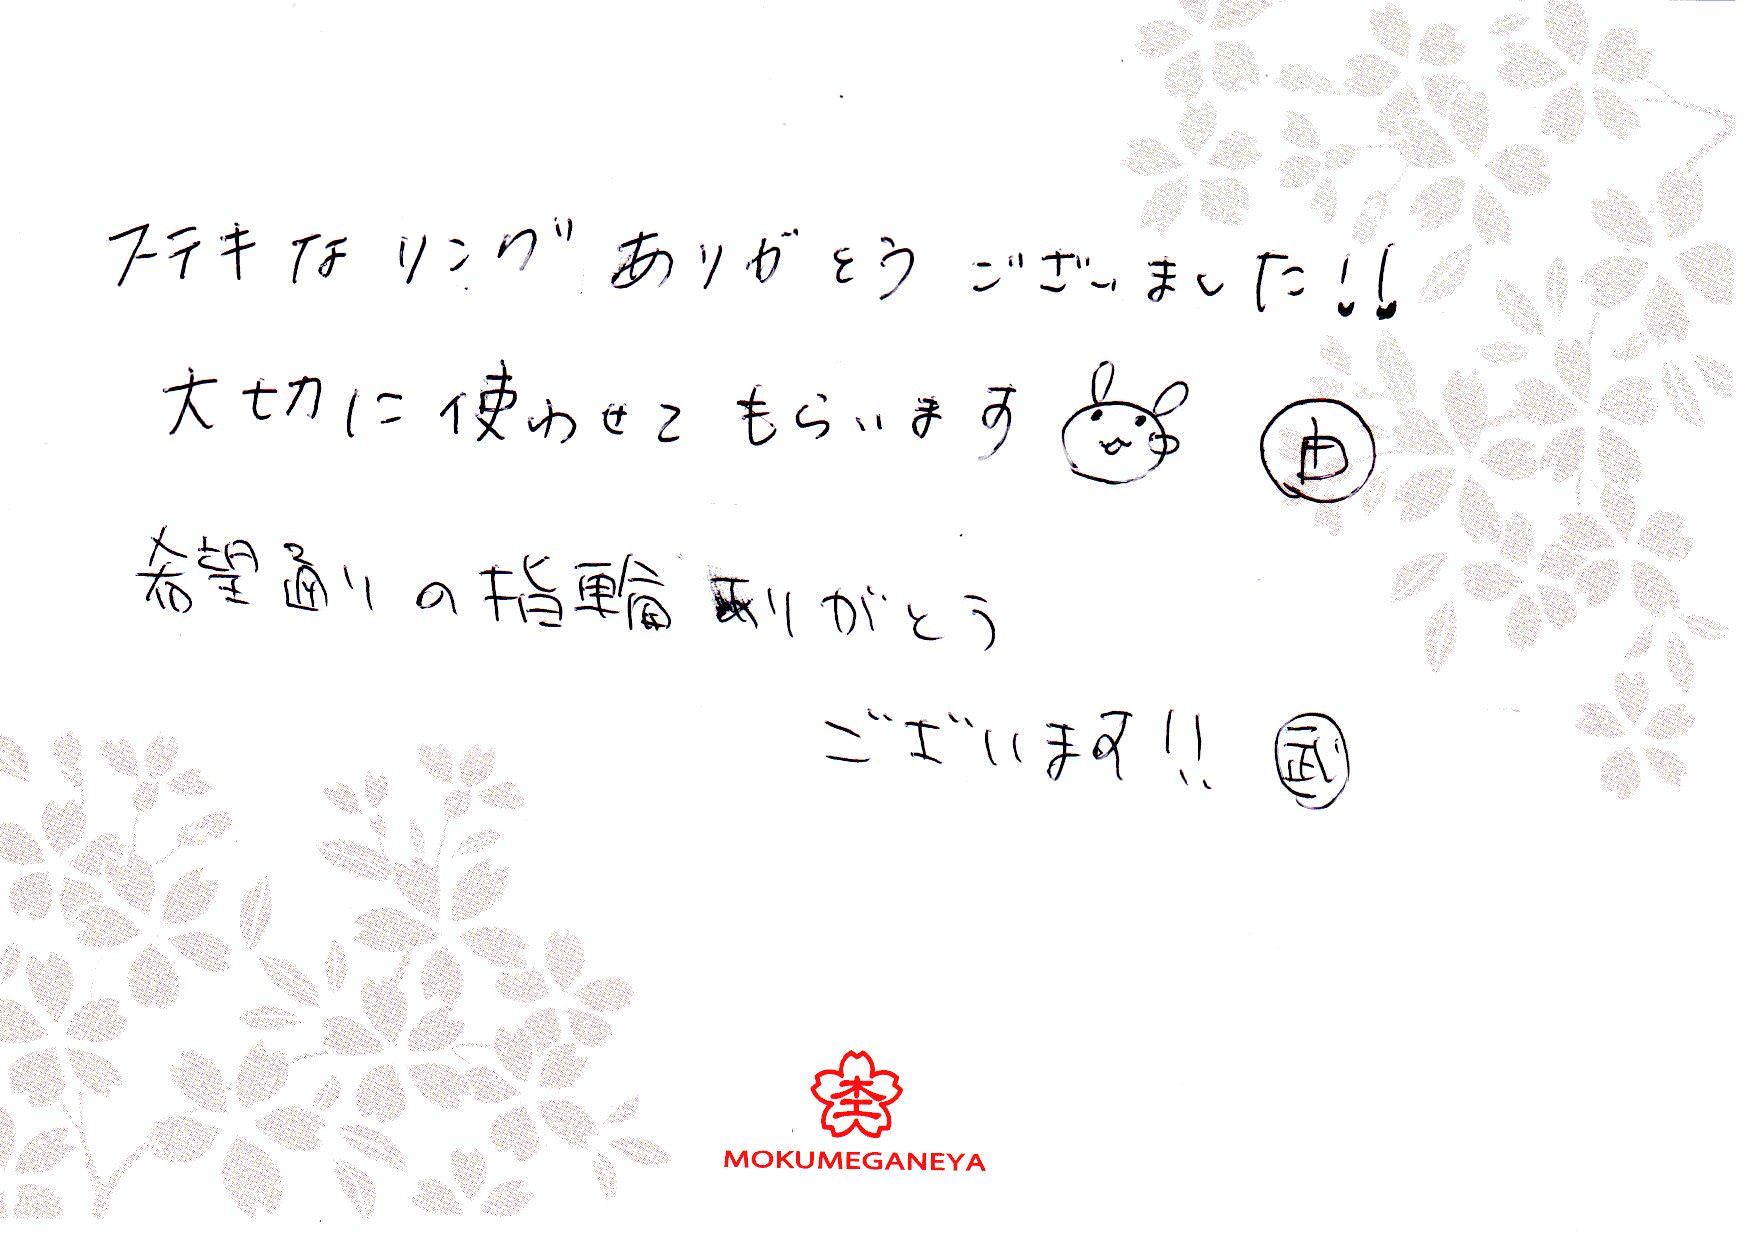 ステキなリングありがとうございました!!
大切に使わせてもらいます 由
希望通りの指輪ありがとう
ございます!! 武
MOKUMEGANEYA